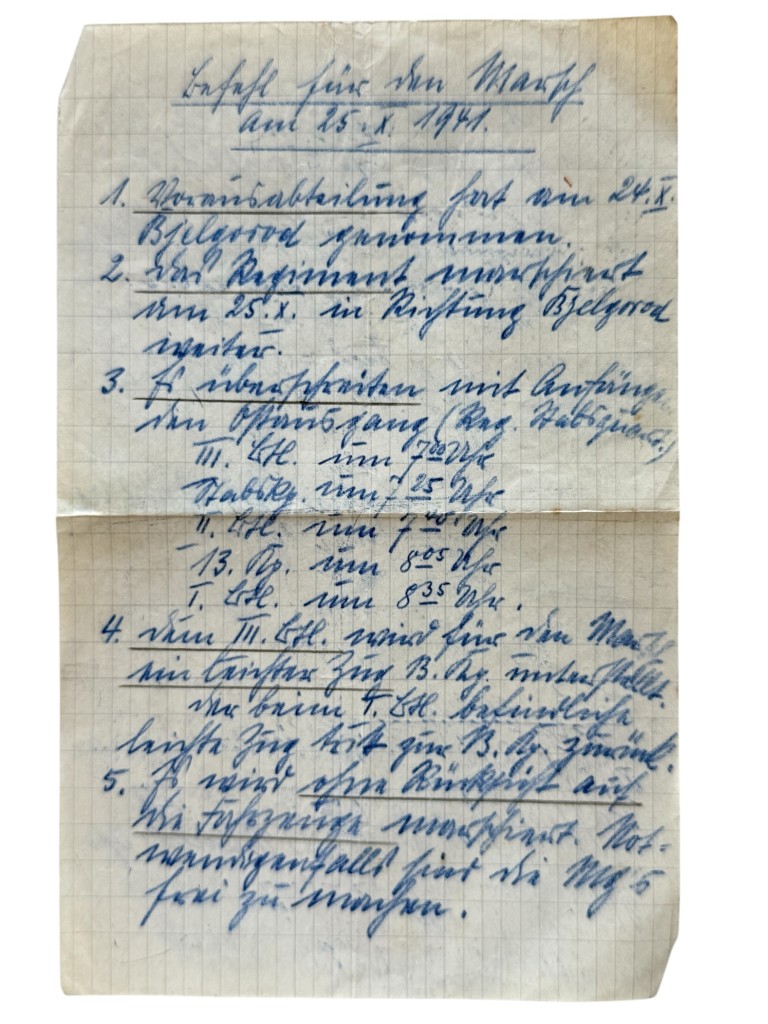 Befehl für den Marsch
am 25.X. 1941.
1. Vorausabteilung hat am 24.X.
Bjelgorod genommen.
2. Das Regiment marschiert
am 25.X. in Richtung Bjelgorod
weiter.
3. Es überschreiten mit Anfängen
den Ostausgang (Reg. Stabsquart.)
III. Btl. um 7⁰⁰ Uhr
Stabskp. um 7²⁵ Uhr
II. Btl. um 7⁴⁰ Uhr
13. Kp. um 8⁰⁵ Uhr
I. Btl. um 8³⁵ Uhr.
4. Dem III. Btl. wird für den Marsch
ein leichter Zug 13. Kp. unterstellt.
Der beim I. Btl. befindliche
leichte Zug tritt zur 13. Kp. zurück.
5. Es wird ohne Rücksicht auf
die Fahrzeuge marschiert. Not-
wendigenfalls sind die MG's
frei zu machen.